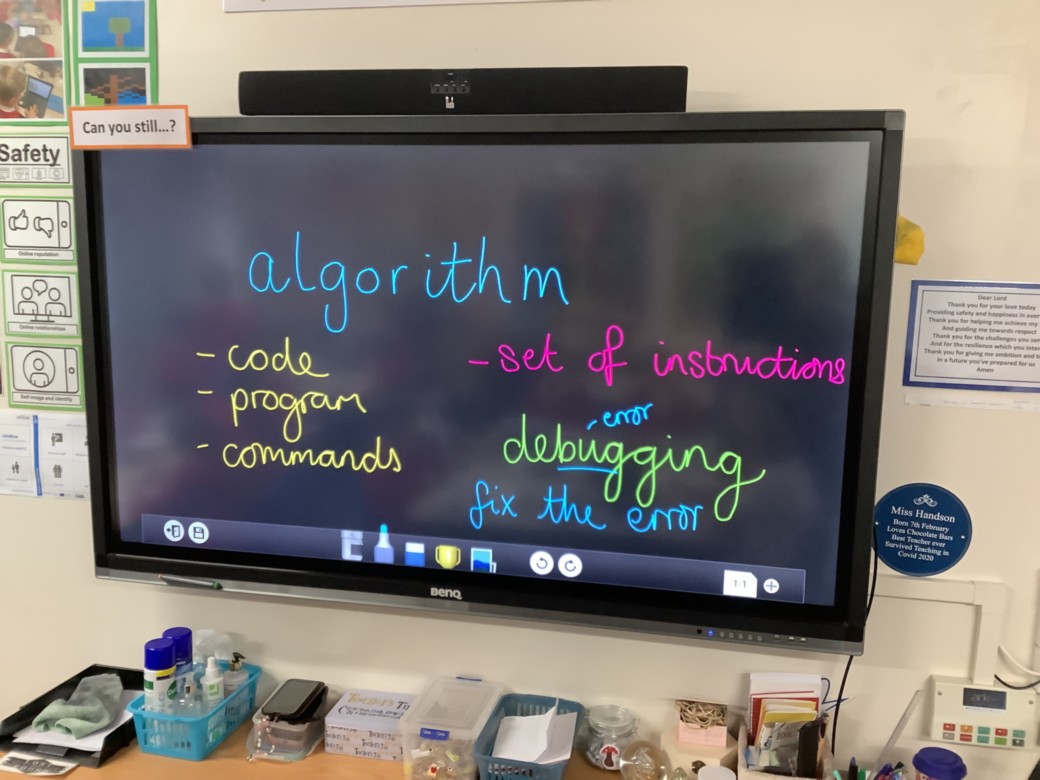 Can you still...?
Safety
Online reputation
Online relationships
Self-image and identity
algorithm
- code
- program
- commands
- set of instructions
error
debugging
fix the error
1/1
BenQ
Dear Lord
Thank you for your love today
Providing safety and happiness in
Thank you for helping me achieve my
And guiding me towards respect
Thank you for the challenges you
And for the resilience which you
Thank you for giving me ambition and
in a future you've prepared for us
Amen
Miss Handson
Born 7th February
Loves Chocolate Bars
Best Teacher ever
Survived Teaching in
Covid 2020